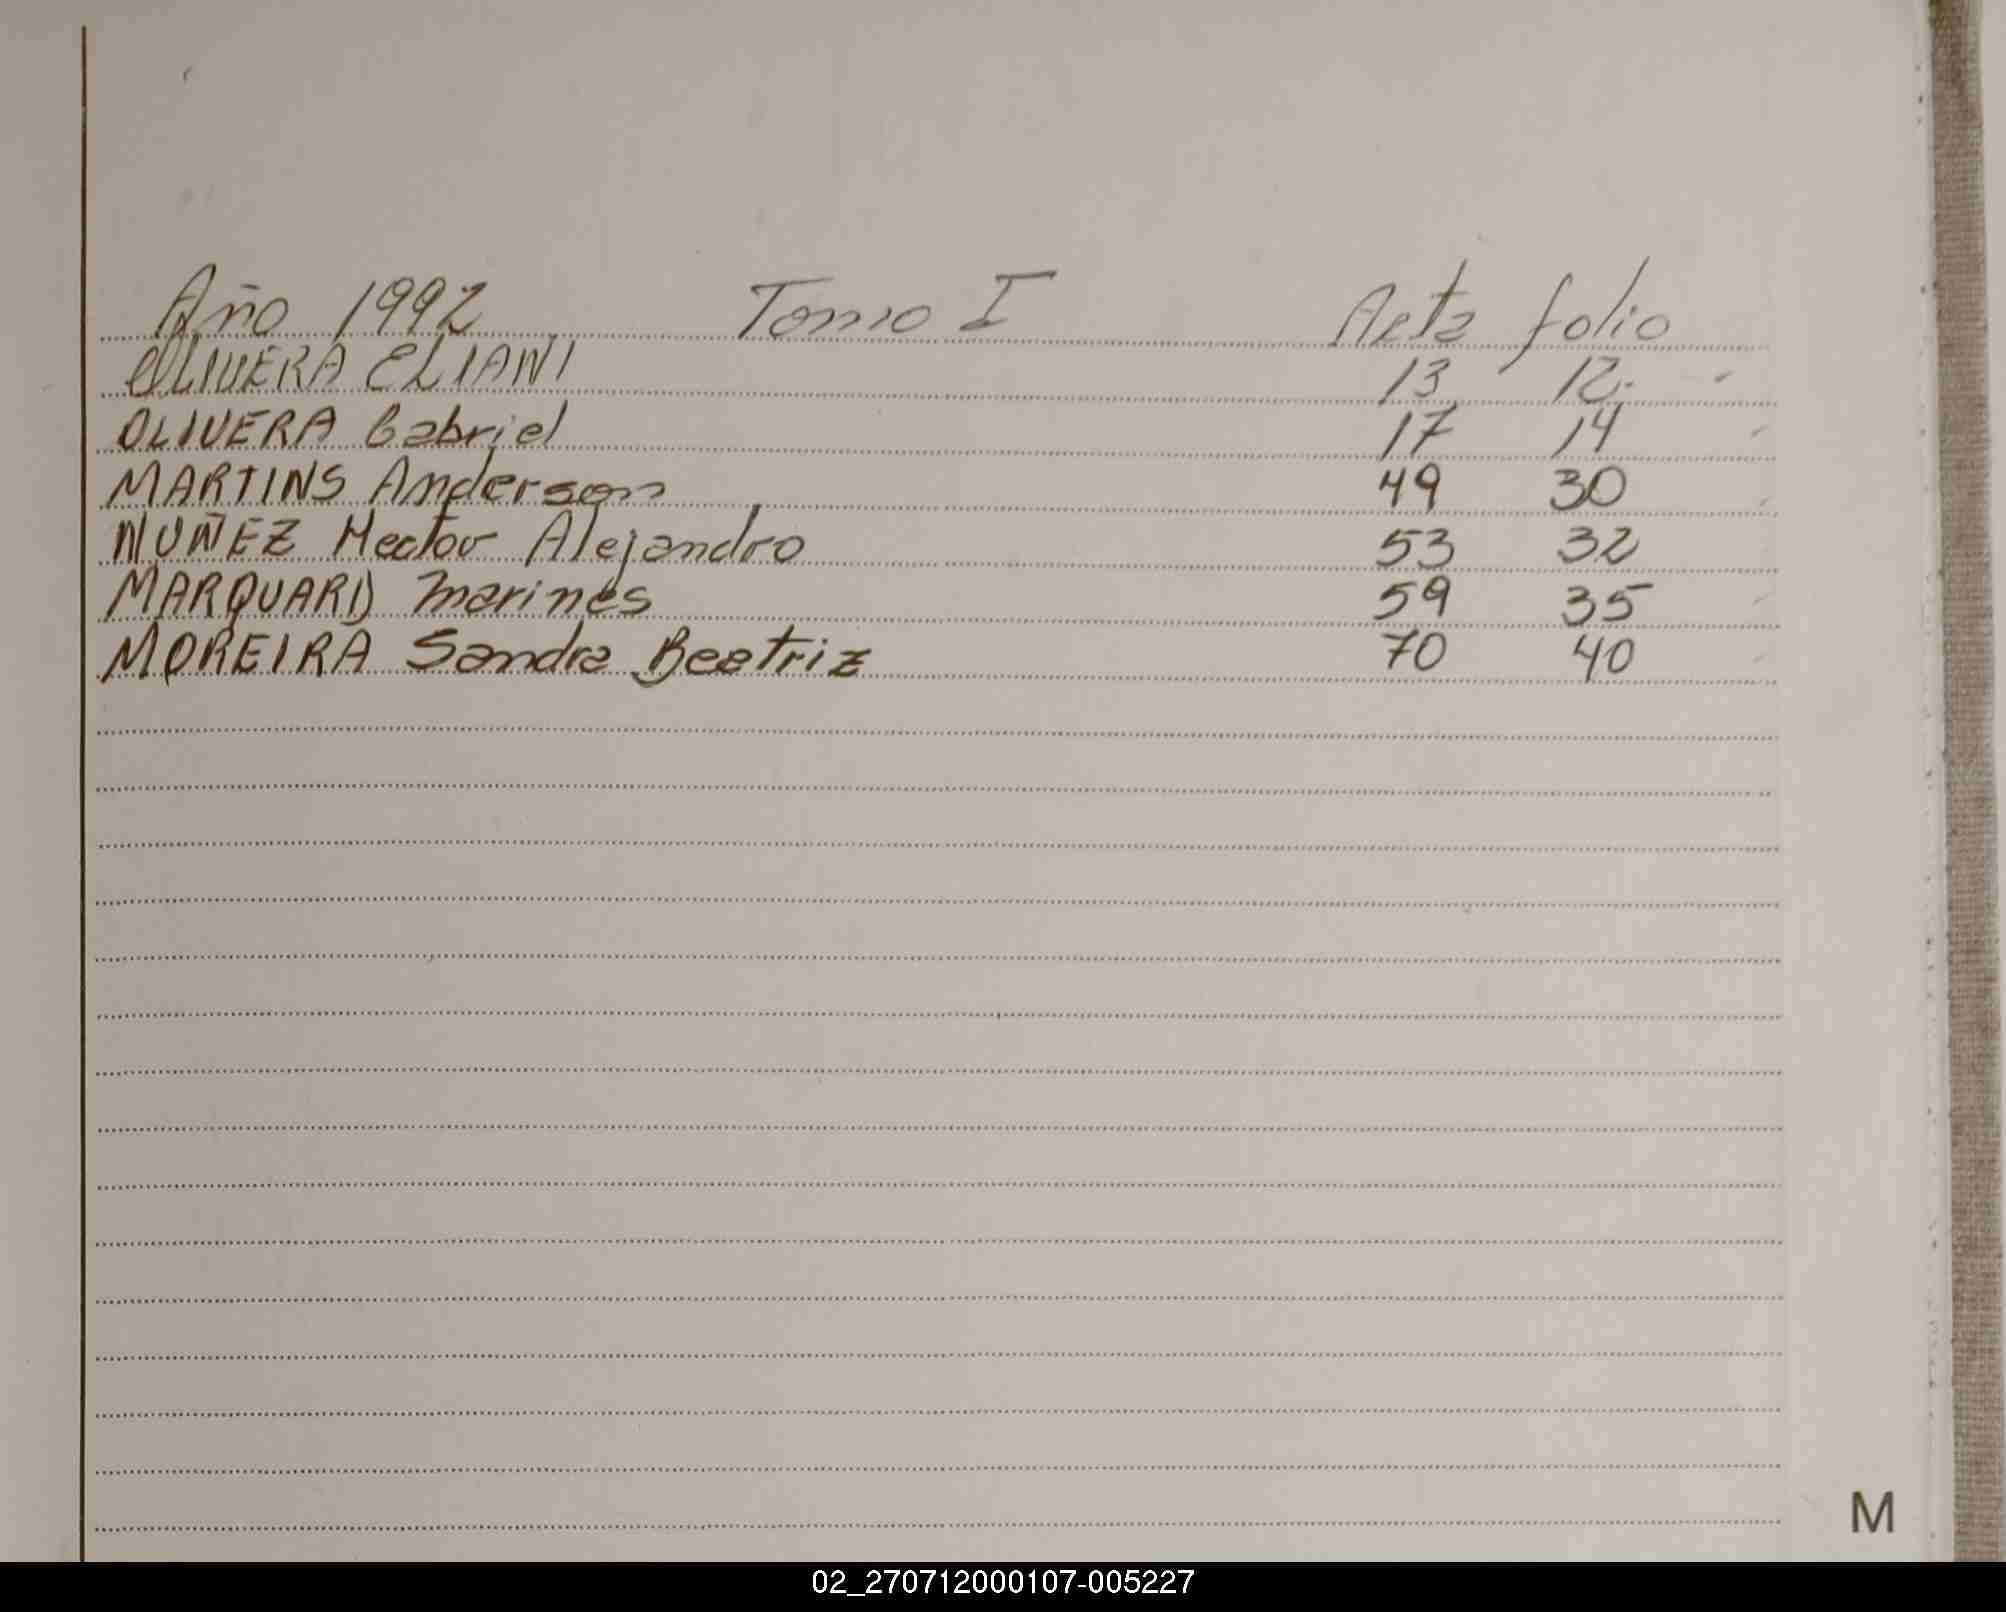 Año 1992 Tomo I Acta folio
OLIVERA ELIANI 13 12.
OLIVERA Gabriel 17 14
MARTINS Anderson 49 30
NUÑEZ Hector Alejandro 53 32
MARQUARD Marines 59 35
MOREIRA Sandra Beatriz 70 40
M
02_270712000107-005227